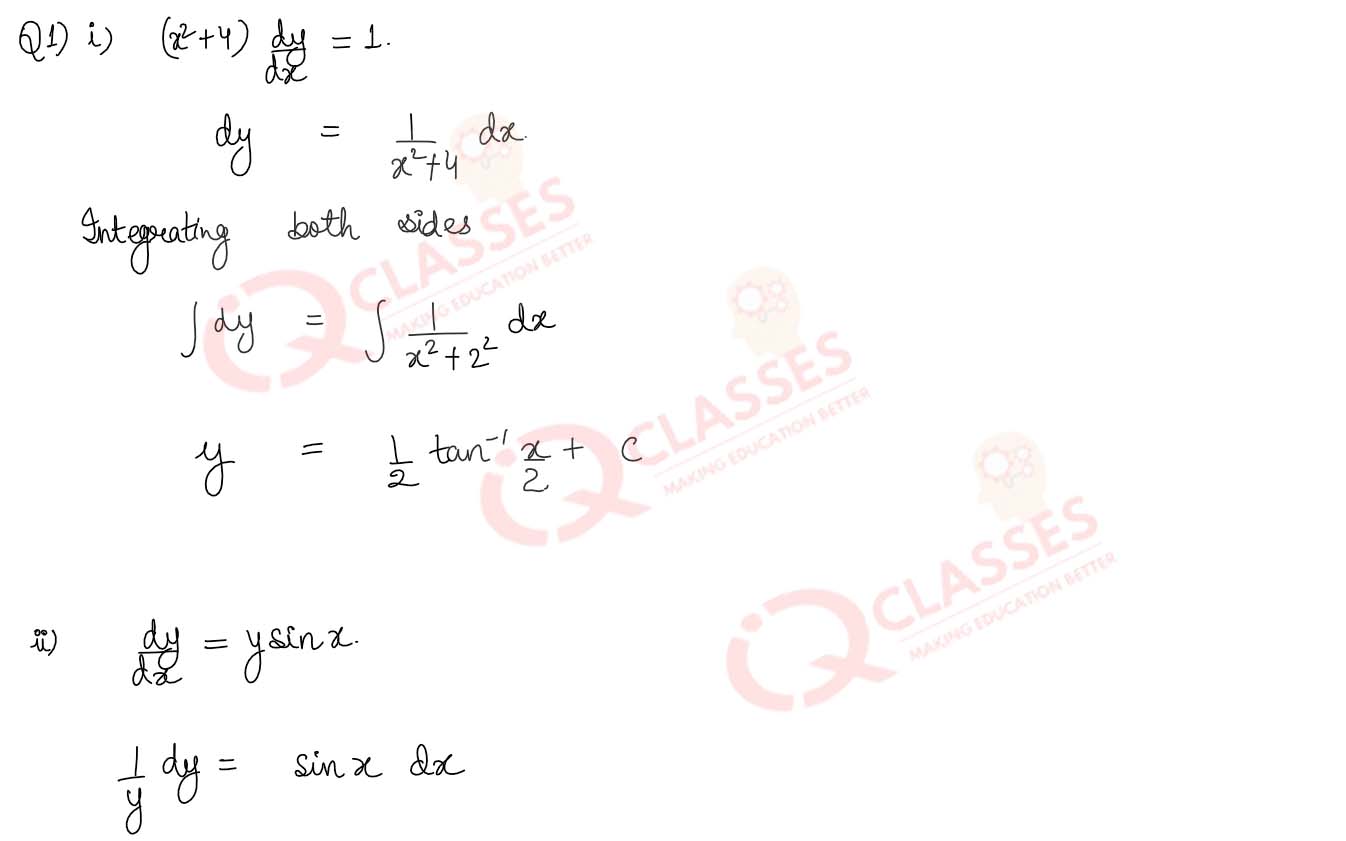 Q1) i) (x²+4) dy/dx = 1.
dy = 1/(x²+4) dx.
Integrating both sides
∫ dy = ∫ 1/(x²+2²) dx
y = 1/2 tan⁻¹ x/2 + C
ii) dy/dx = y sinx.
1/y dy = sinx dx
IQ CLASSES
MAKING EDUCATION BETTER
IQ CLASSES
MAKING EDUCATION BETTER
IQ CLASSES
MAKING EDUCATION BETTER